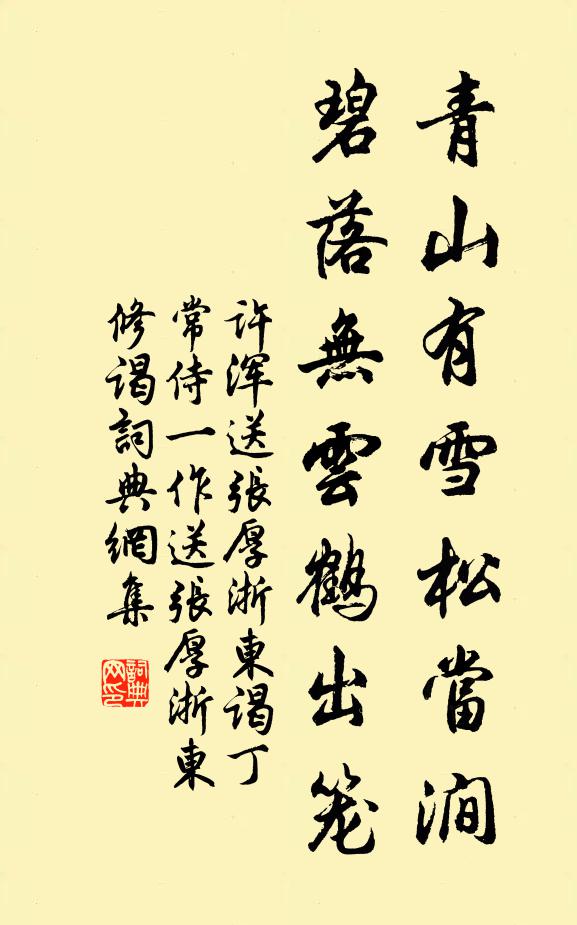 青山有雪松當澗
碧落無雲鶴出笼
许渾送張厚浙東謁丁
常侍一作送張厚浙東
修謁詞典網集
詞典网印